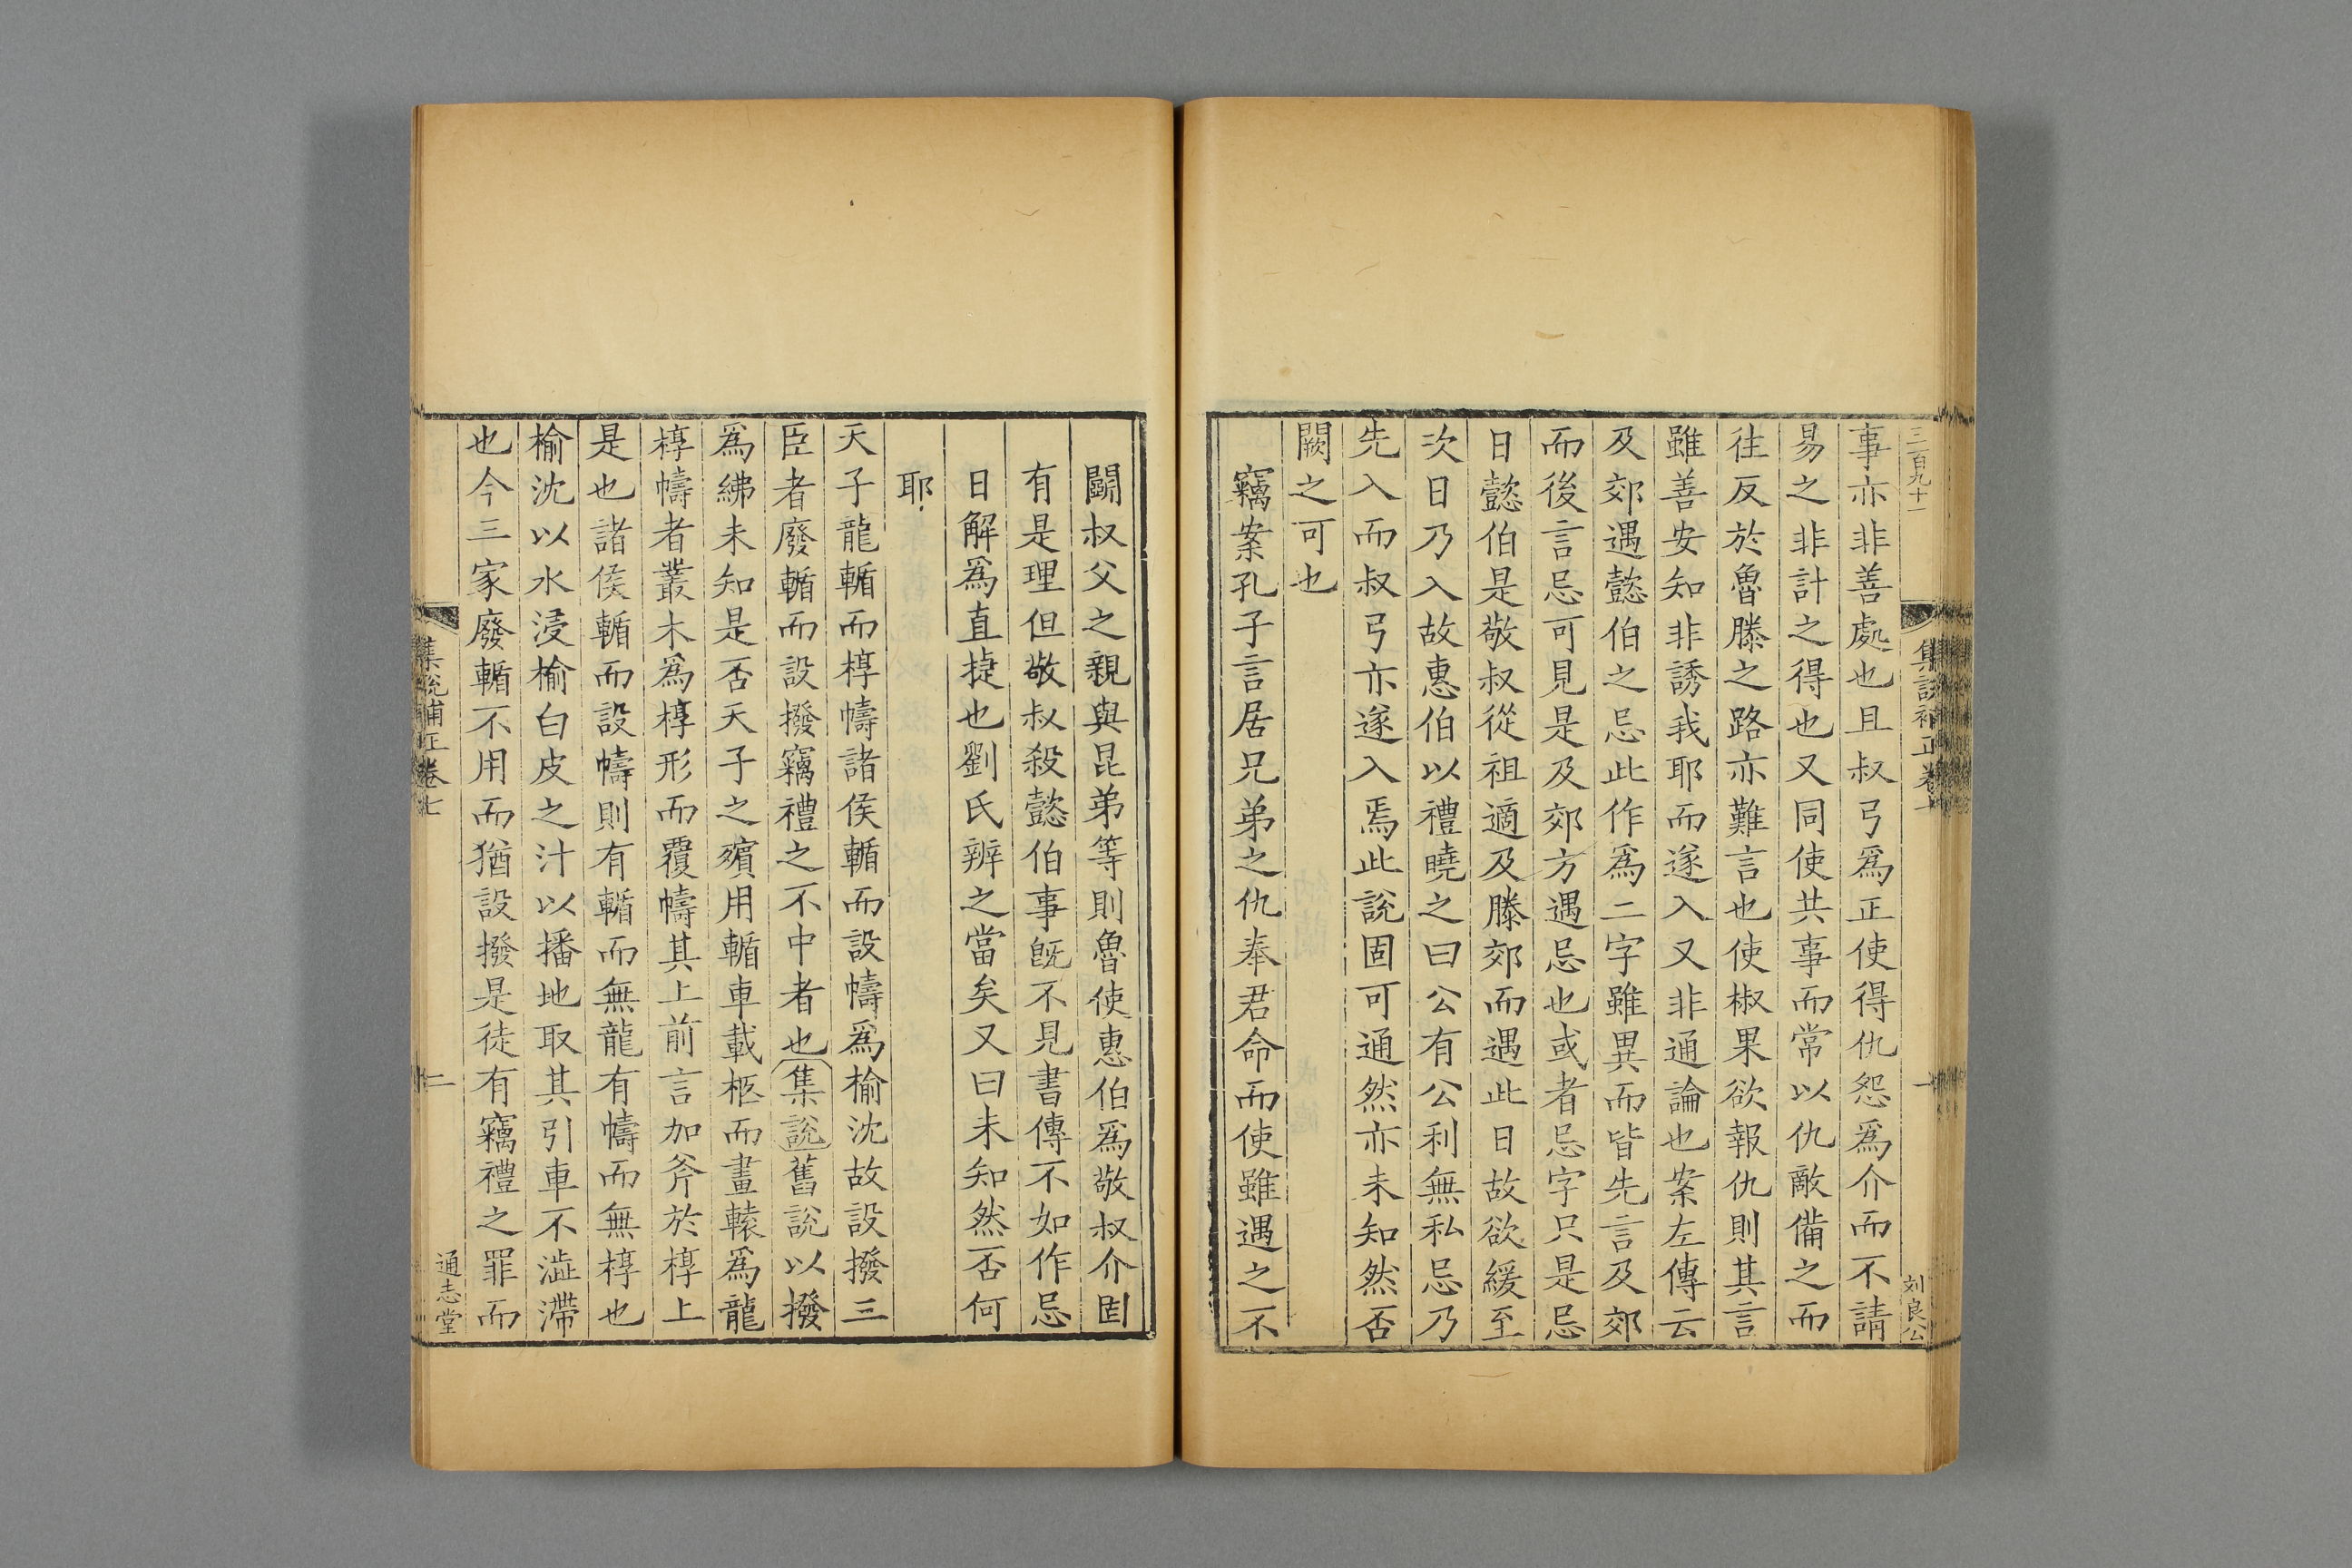 三百九十二
集說補正卷七
一
刘良公
事亦非善處也且叔弓爲正使得仇怨爲介而不請
易之非計之得也又同使共事而常以仇敵備之而
往反於魯滕之路亦難言也使椒果欲報仇則其言
雖善安知非誘我耶而遂入又非通論也案左傳云
及郊遇懿伯之忌此作爲二字雖異而皆先言及郊
而後言忌可見是及郊方遇忌也或者忌字只是忌
日懿伯是敬叔從祖適及滕郊而遇此日故欲緩至
次日乃入故惠伯以禮曉之曰公有公利無私忌乃
先入而叔弓亦遂入焉此說固可通然亦未知然否
闕之可也
竊案孔子言居兄弟之仇奉君命而使雖遇之不
鬭叔父之親與昆弟等則魯使惠伯爲敬叔介固
有是理但敬叔殺懿伯事旣不見書傳不如作忌
日解爲直捷也劉氏辨之當矣又曰未知然否何
耶
天子龍輴而椁幬諸侯輴而設幬爲榆沈故設撥三
臣者廢輴而設撥竊禮之不中者也集說舊說以撥
爲紼未知是否天子之殯用輴車載柩而畫轅爲龍
椁幬者叢木爲椁形而覆幬其上前言加斧於椁上
是也諸侯輴而設幬則有輴而無龍有幬而無椁也
榆沈以水浸榆白皮之汁以播地取其引車不澁滯
也今三家廢輴不用而猶設撥是徒有竊禮之罪而
集說補正卷七
二
通志堂